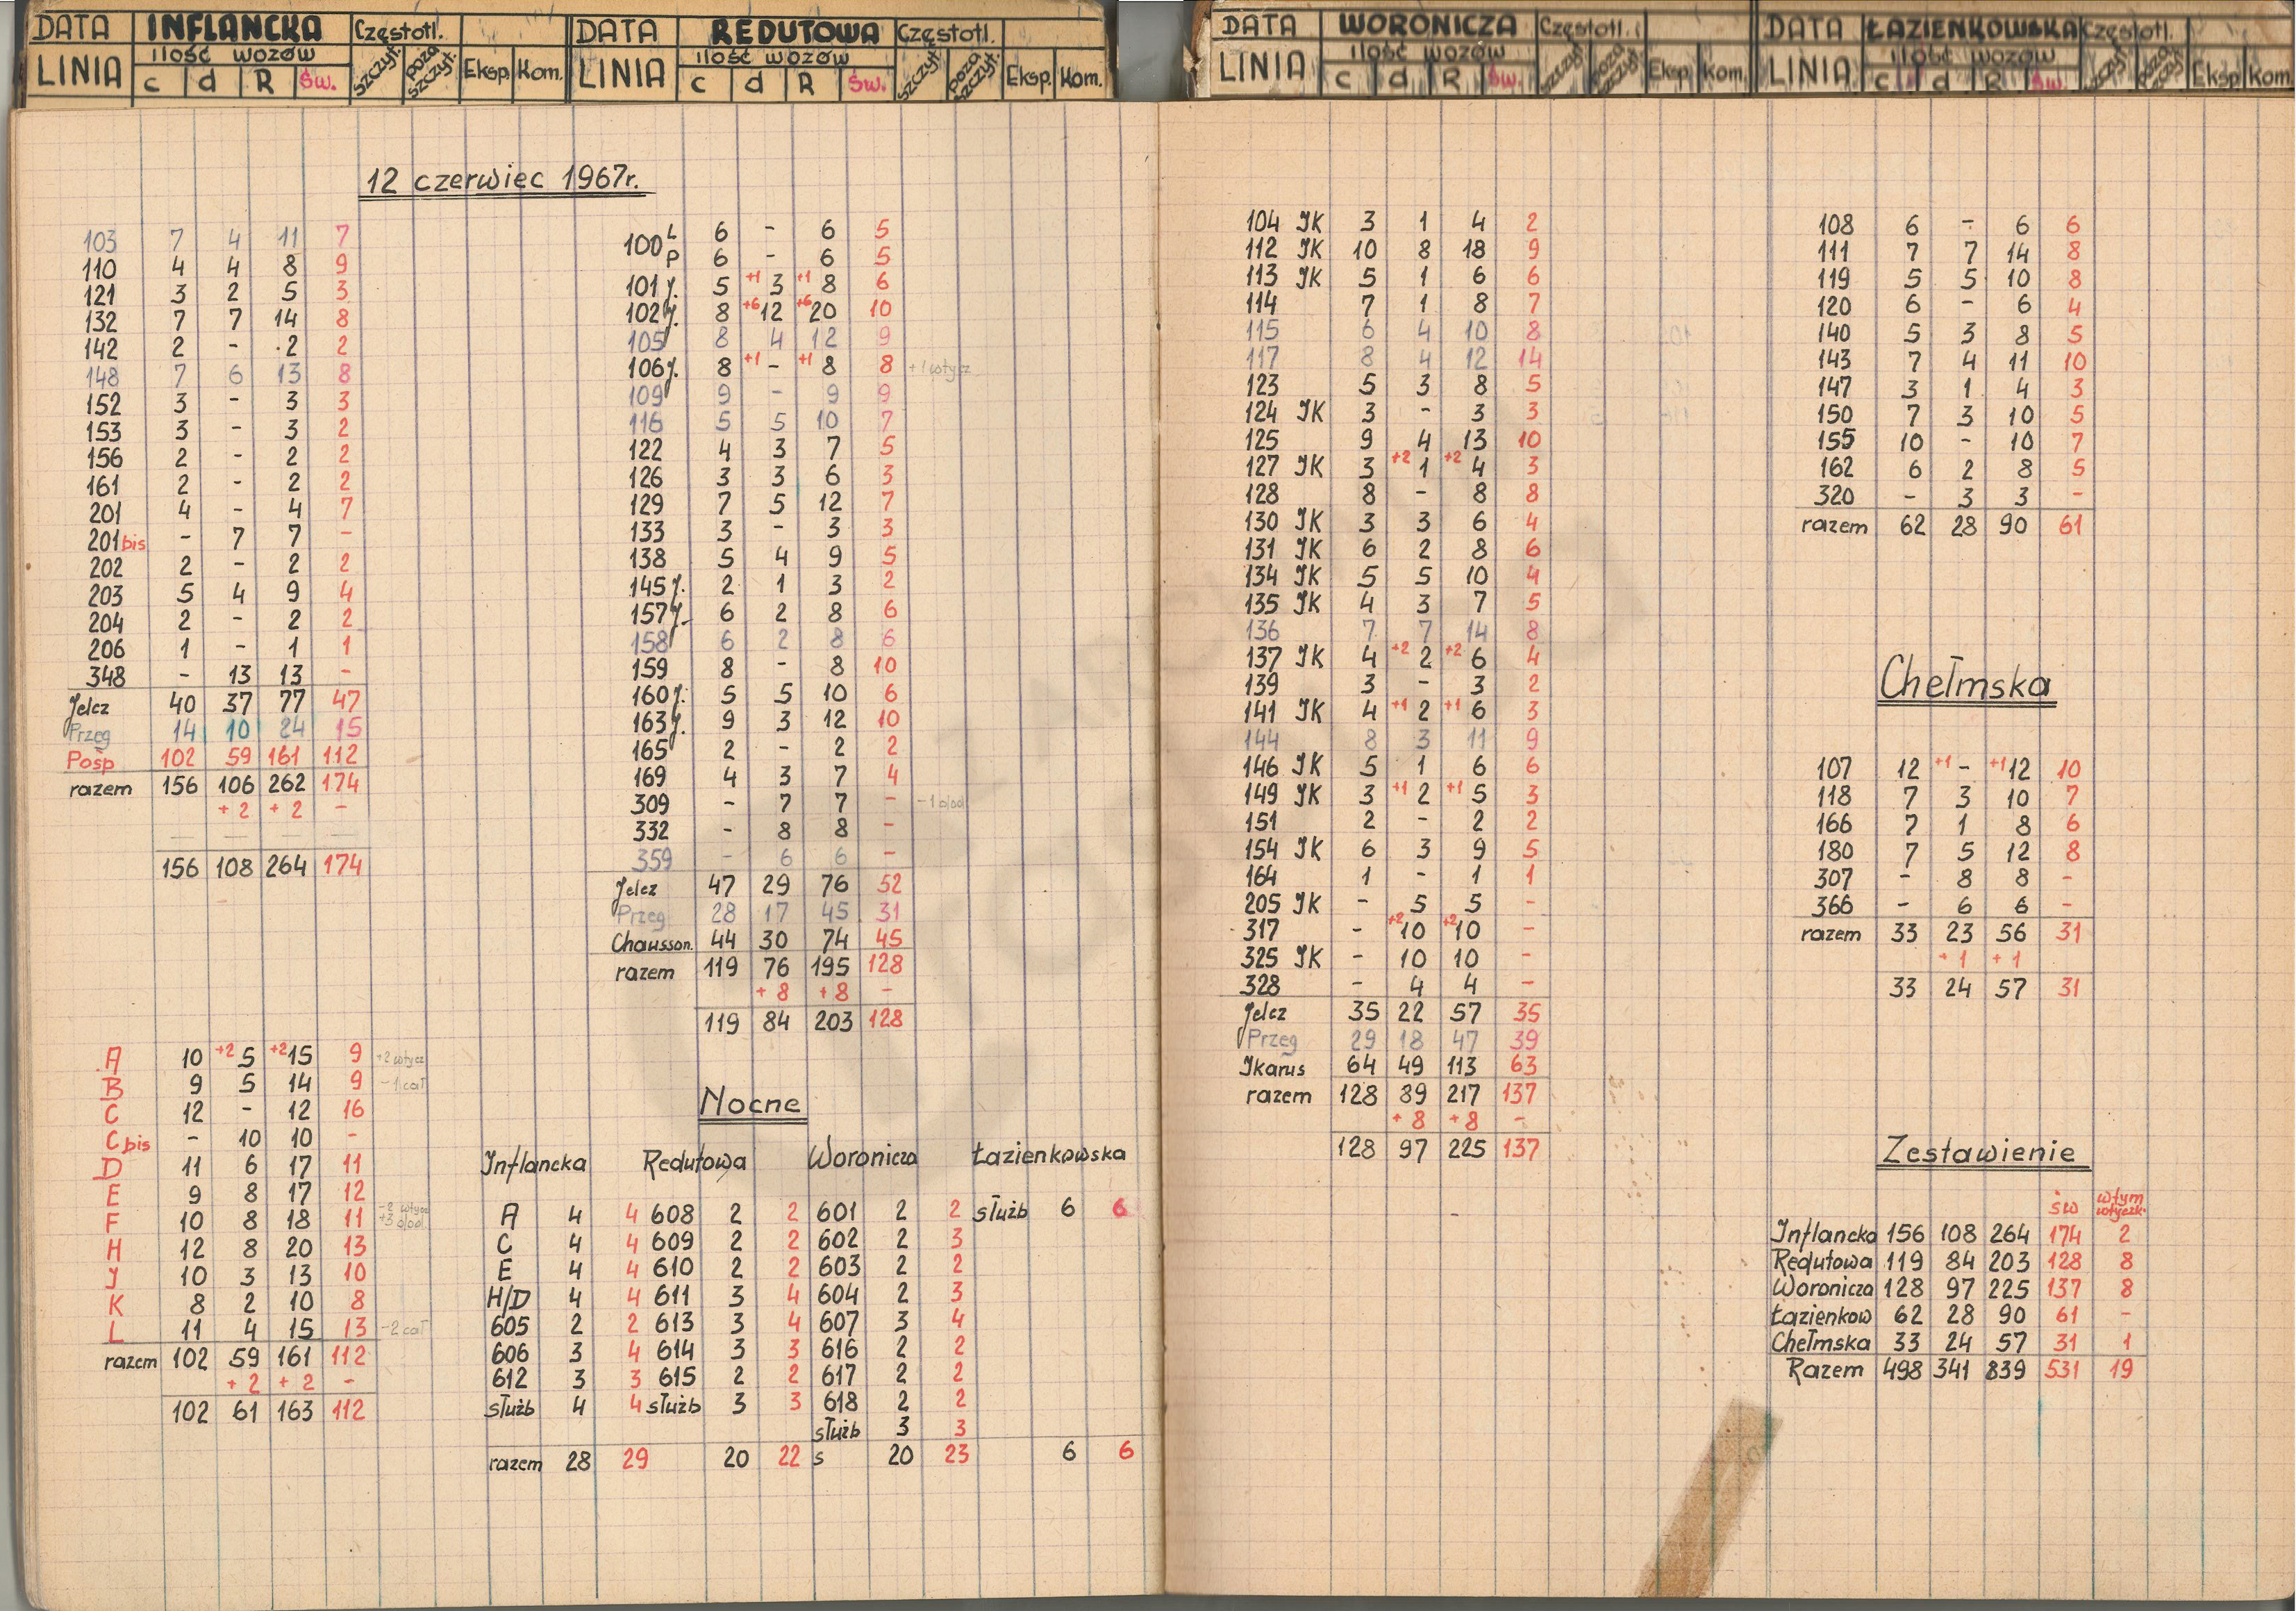 DATA INFLANCKA Częstotl.
LINIA ilość wozów szczyt. poza szczyt. Eksp. Kom.
c d R Św.
12 czerwiec 1967r.
103 7 4 11 7
110 4 4 8 9
121 3 2 5 3
132 7 7 14 8
142 2 - 2 2
148 7 6 13 8
152 3 - 3 3
153 3 - 3 2
156 2 - 2 2
161 2 - 2 2
201 4 - 4 7
201bis - 7 7 -
202 2 - 2 2
203 5 4 9 4
204 2 - 2 2
206 1 - 1 1
348 - 13 13 -
Jelcz 40 37 77 47
Przeg 14 10 24 15
Pośp 102 59 161 112
razem 156 106 262 174
+2 +2 -
156 108 264 174
A 10 +2 5 +2 15 9 +2 wtycz
B 9 5 14 9 -1 cał
C 12 - 12 16
C bis - 10 10 -
D 11 6 17 11
E 9 8 17 12
F 10 8 18 11 -2 wtycz +3 dod
H 12 8 20 13
J 10 3 13 10
K 8 2 10 8
L 11 4 15 13 -2 cał
razem 102 59 161 112
+2 +2 -
102 61 163 112
DATA REDUTOWA Częstotl.
LINIA ilość wozów szczyt. poza szczyt. Eksp. Kom.
c d R Św.
100 L 6 - 6 5
P 6 - 6 5
101 j. 5 +1 3 +1 8 6
102 j. 8 +6 12 +6 20 10
105 8 4 12 9
106 j. 8 +1 - +1 8 8 +1 wtycz
109 9 - 9 9
116 5 5 10 7
122 4 3 7 5
126 3 3 6 3
129 7 5 12 7
133 3 - 3 3
138 5 4 9 5
145 j. 2 1 3 2
157 j. 6 2 8 6
158 6 2 8 6
159 8 - 8 10
160 j. 5 5 10 6
163 j. 9 3 12 10
165 2 - 2 2
169 4 3 7 4
309 - 7 7 - -1 dod
332 - 8 8 -
359 - 6 6 -
Jelcz 47 29 76 52
Przeg 28 17 45 31
Chausson. 44 30 74 45
razem 119 76 195 128
+8 +8 -
119 84 203 128
Nocne
Inflancka Redutowa Woronicza Łazienkowska
A 4 4 608 2 2 601 2 2 służb 6 6
C 4 4 609 2 2 602 2 3
E 4 4 610 2 2 603 2 2
H/D 4 4 611 3 4 604 2 3
605 2 2 613 3 4 607 3 4
606 3 4 614 3 3 616 2 2
612 3 3 615 2 2 617 2 2
służb 4 4 służb 3 3 618 2 2
służb 3 3
razem 28 29 20 22 s 20 23 6 6
DATA WORONICZA Częstotl.
LINIA ilość wozów szczyt poza szczyt. Eksp. Kom.
c d R Św.
104 JK 3 1 4 2
112 JK 10 8 18 9
113 JK 5 1 6 6
114 7 1 8 7
115 6 4 10 8
117 8 4 12 14
123 5 3 8 5
124 JK 3 - 3 3
125 9 4 13 10
127 JK 3 +2 1 +2 4 3
128 8 - 8 8
130 JK 3 3 6 4
131 JK 6 2 8 6
134 JK 5 5 10 4
135 JK 4 3 7 5
136 7 7 14 8
137 JK 4 +2 2 +2 6 4
139 3 - 3 2
141 JK 4 +1 2 +1 6 3
144 8 3 11 9
146 JK 5 1 6 6
149 JK 3 +1 2 +1 5 3
151 2 - 2 2
154 JK 6 3 9 5
164 1 - 1 1
205 JK - 5 5 -
317 - +2 10 +2 10 -
325 JK - 10 10 -
328 - 4 4 -
Jelcz 35 22 57 35
Przeg 29 18 47 39
Jkarus 64 49 113 63
razem 128 89 217 137
+8 +8 -
128 97 225 137
DATA ŁAZIENKOWSKA Częstotl.
LINIA ilość wozów szczyt poza szczyt. Eksp Kom
c d R Św.
108 6 - 6 6
111 7 7 14 8
119 5 5 10 8
120 6 - 6 4
140 5 3 8 5
143 7 4 11 10
147 3 1 4 3
150 7 3 10 5
155 10 - 10 7
162 6 2 8 5
320 - 3 3 -
razem 62 28 90 61
Chełmska
107 12 +1 - +1 12 10
118 7 3 10 7
166 7 1 8 6
180 7 5 12 8
307 - 8 8 -
366 - 6 6 -
razem 33 23 56 31
+1 +1
33 24 57 31
Zestawienie
św wtym wtyczk.
Inflancka 156 108 264 174 2
Redutowa 119 84 203 128 8
Woronicza 128 97 225 137 8
Łazienkow 62 28 90 61 -
Chełmska 33 24 57 31 1
Razem 498 341 839 531 19